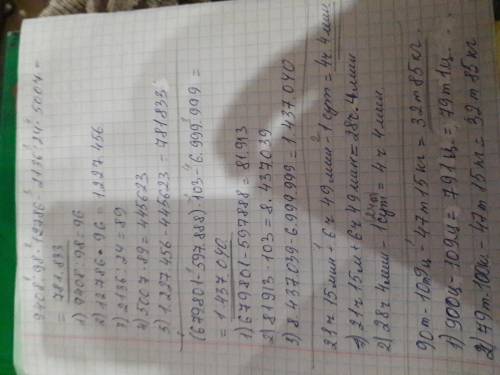 9408:98·12786-2136:24·5004=
= 781.833
1) 9408:98=96
2) 12786·96=1.227.456
3) 2136:24=89
4) 5007·89=445623
5) 1.227.456-445623=781833
(679801-597.888)·103-6.999.999=
=1.437.040
1) 679801-597888=81.913
2) 81913·103=8.437.039
3) 8.437.039-6.999.999=1.437.040
21ч 15мин+6ч 49мин-1сут=4ч 4мин
1) 21ч 15м+6ч 49мин=28ч.4мин
2) 28ч 4мин-1сут=4ч 4мин.
90т-109ц-47т 15кг=32т 85кг.
1) 900ц-109ц=791ц=79т 1ц
2) 79т.100кг-47т 15кг=32т 85кг